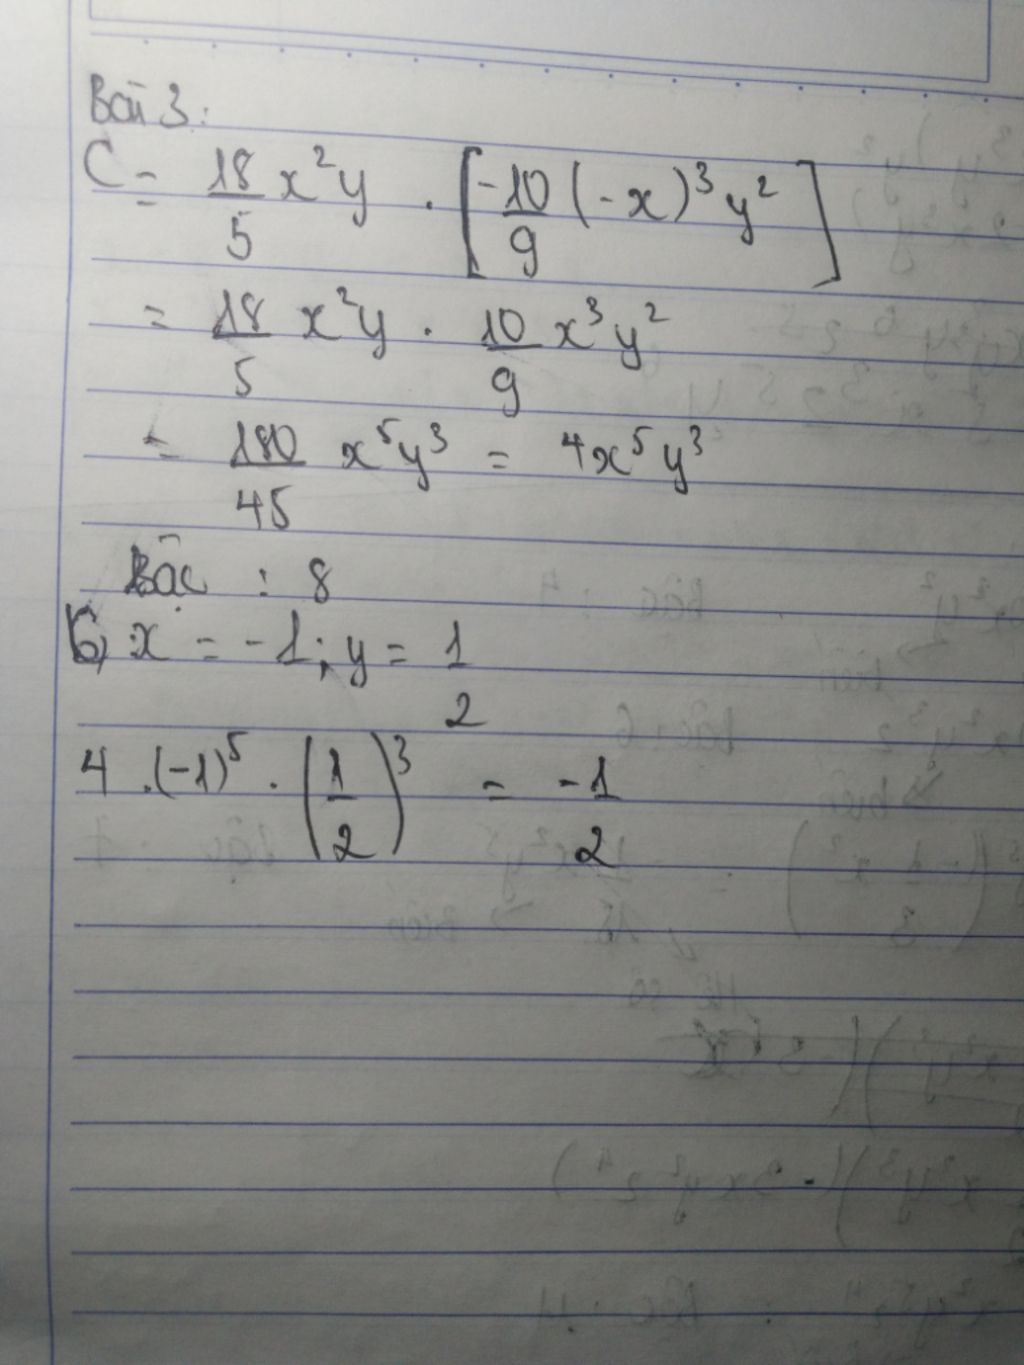 Bài 3:
C = 18/5 x²y . [-10/9 (-x)³y²]
= 18/5 x²y . 10/9 x³y²
= 180/45 x⁵y³ = 4x⁵y³
Bậc : 8
b, x = -1 ; y = 1/2
4 .(-1)⁵ . (1/2)³ = -1/2